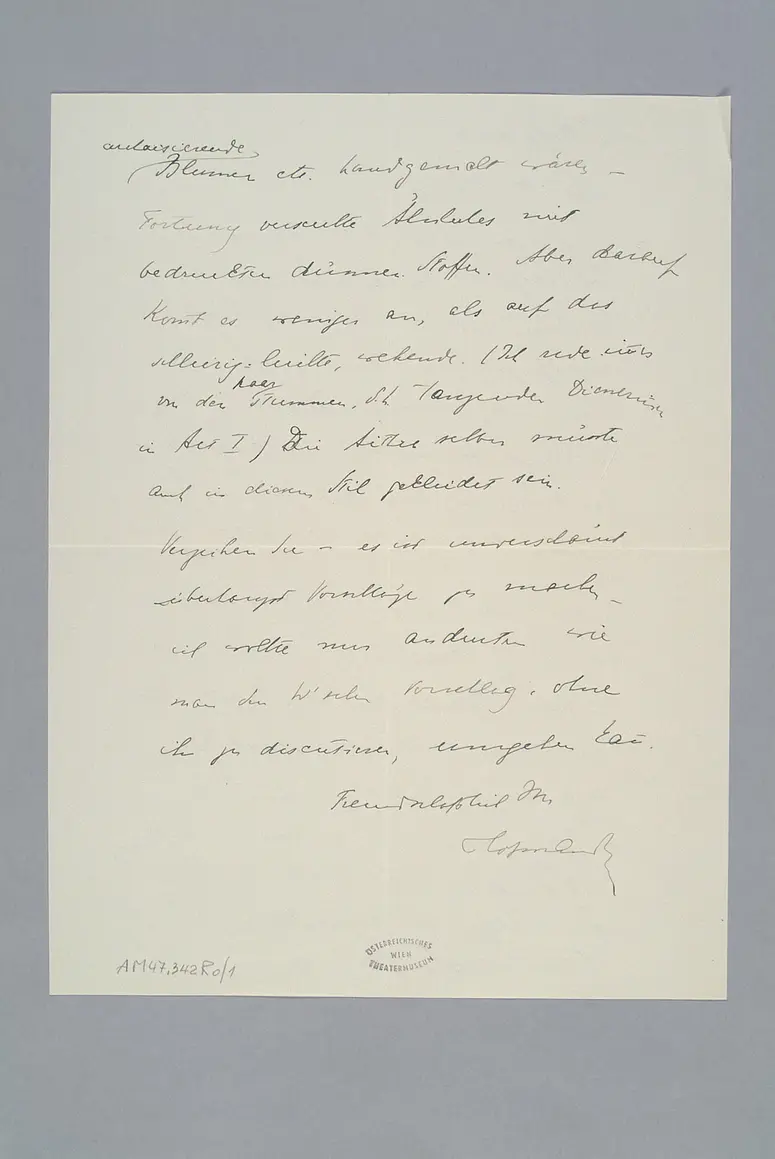 archaisierende
Blumen etc. handgemalt wären –
Fortuny versuchte Ähnliches mit
bedruckten dünnen Stoffen. Aber darauf
kommt es weniger an, als auf das
schleierig-, wehende. (Ich rede
von den paar Stummen, d.h. tanzenden Dienerinnen
in Act I) Die selber müsste
auch in diesem Stil gekleidet sein.
Verzeihen Sie – es ist unverschämt
überhaupt Vorschläge zu machen –
ich wollte nur andeuten wie
man den W'schen Vorschlag, ohne
ihn zu discutieren, umgehen kan̄.
Freundschaftlich Ihr
Hofmannsthal
ÖSTERREICHISCHES
WIEN
THEATERMUSEUM
AM47.342Ro/1